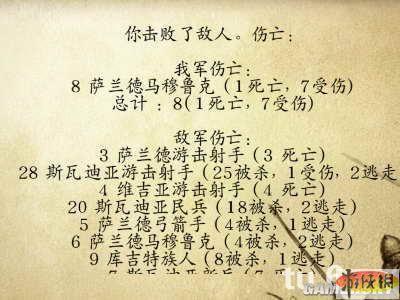 你击败了敌人。伤亡:
我军伤亡:
8 萨兰德马穆鲁克 (1死亡, 7受伤)
总计 : 8(1死亡, 7受伤)
敌军伤亡:
3 萨兰德游击射手 (3 死亡)
28 斯瓦迪亚游击射手 (25被杀, 1受伤, 2逃走
4 维吉亚游击射手 (4 死亡)
20 斯瓦迪亚民兵 (18被杀, 2逃走)
5 萨兰德弓箭手 (4被杀, 1逃走)
6 萨兰德马穆鲁克 (4被杀, 2逃走)
9 库吉特族人 (8被杀, 1逃走)
斯瓦迪亚新兵
游侠网